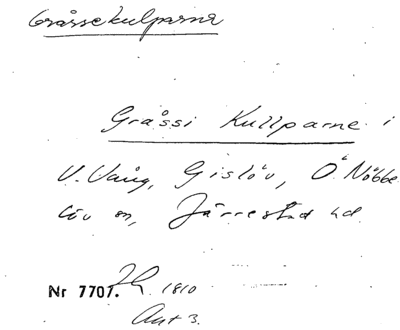 Gråssekulparna
Gråssi Kullparne i
V. Vång, Gislöv, Ö Nöbbe
löv sn, Järrestad hd.
Nr 7707. 1810
Akt 3.